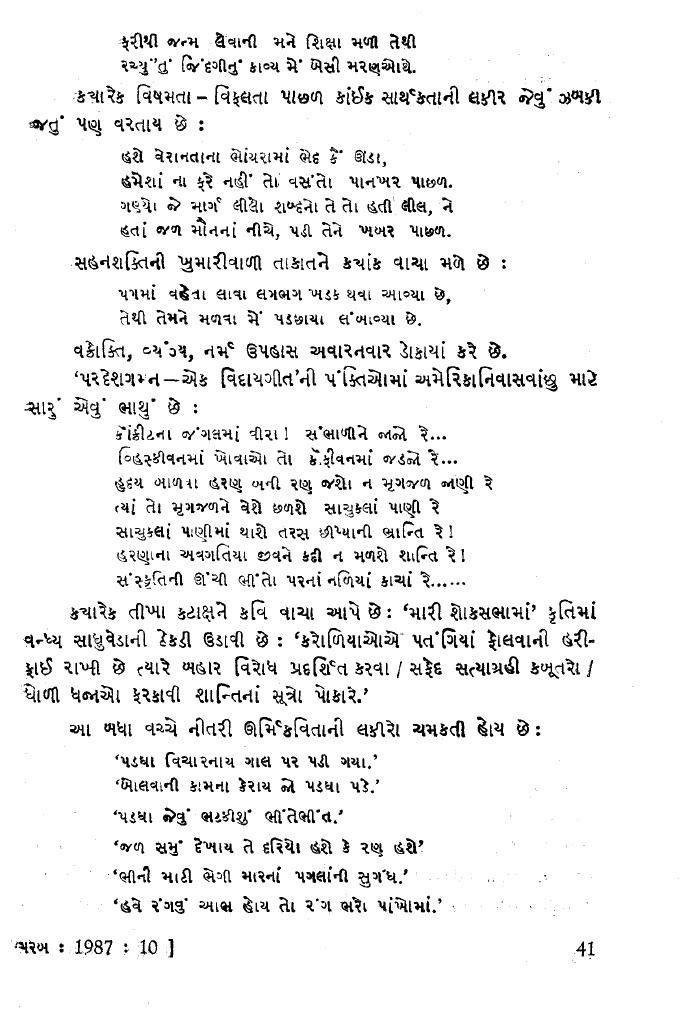 ફરીથી જન્મ લેવાની મને શિક્ષા મળી તેથી
રચ્યું'તું જિંદગીનું કાવ્ય મેં બેસી મરણઓથે.
ક્યારેક વિષમતા – વિફલતા પાછળ કાંઈક સાર્થકતાની લકીર જેવું ઝબકી
જતું પણ વરતાય છે :
હશે વેરાનતાના ભોંયરામાં ભેદ કૈં ઊંડા,
હમેશાં ના ફરે નહીં તો વસંતો પાનખર પાછળ.
ગણ્યો જે માર્ગ લીધો શબ્દનો તે તો હતી લીલ, ને
હતાં જળ મૌનનાં નીચે, પડી તેને ખબર પાછળ.
સહનશક્તિની ખુમારીવાળી તાકાતને ક્યાંક વાચા મળે છે :
પગમાં વહેતા લાવા લગભગ ખડક થવા આવ્યા છે,
તેથી તેમને મળવા મેં પડછાયા લંબાવ્યા છે.
વક્રોક્તિ, વ્યંગ્ય, નર્મ ઉપહાસ અવારનવાર ડોકાયાં કરે છે.
'પરદેશગમન – એક વિદાયગીત'ની પંક્તિઓમાં અમેરિકાનિવાસવાંછુ માટે
સારું એવું ભાથું છે :
કોંક્રીટના જંગલમાં વીરા! સંભાળીને જાજો રે...
વ્હિસ્કીવનમાં ખોવાઓ તો કૉફીવનમાં જડજો રે...
હૃદય બાળવા હરણ બની રણ જશો ન મૃગજળ જાણી રે
ત્યાં તો મૃગજળને વેશે છળશે સાચુકલાં પાણી રે
સાચુકલાં પાણીમાં થાશે તરસ છીપ્યાની ભ્રાન્તિ રે!
હરણાના અવગતિયા જીવને કદી ન મળશે શાન્તિ રે!
સંસ્કૃતિની ઊંચી ભીંતો પરનાં નળિયાં કાચાં રે......
ક્યારેક તીખા કટાક્ષને કવિ વાચા આપે છે : 'મારી શોકસભામાં' કૃતિમાં
વન્ધ્ય સાધુવેડાની ઠેકડી ઉડાવી છે : 'કરોળિયાઓએ પતંગિયાં ફોલવાની હરી-
ફાઈ રાખી છે ત્યારે બહાર વિરોધ પ્રદર્શિત કરવા / સફેદ સત્યાગ્રહી કબૂતરો /
ધોળી ધજાઓ ફરકાવી શાન્તિનાં સૂત્રો પોકારે.'
આ બધા વચ્ચે નીતરી ઊર્મિકવિતાની લકીરો ચમકતી હોય છે :
'પડઘા વિચારનાય ગાલ પર પડી ગયા.'
'બોલવાની કામના કેરાય જો પડઘા પડે.'
'પડઘા જેવું ભટકીશું ભીંતેભીંત.'
'જળ સમું દેખાય તે દરિયો હશે કે રણ હશે'
'ભીની માટી ભેગી મારનાં પગલાંની સુગંધ.'
'હવે રંગવું આભ હોય તો રંગ ભરો પાંખોમાં.'
પરબ : 1987 : 10 ]
41